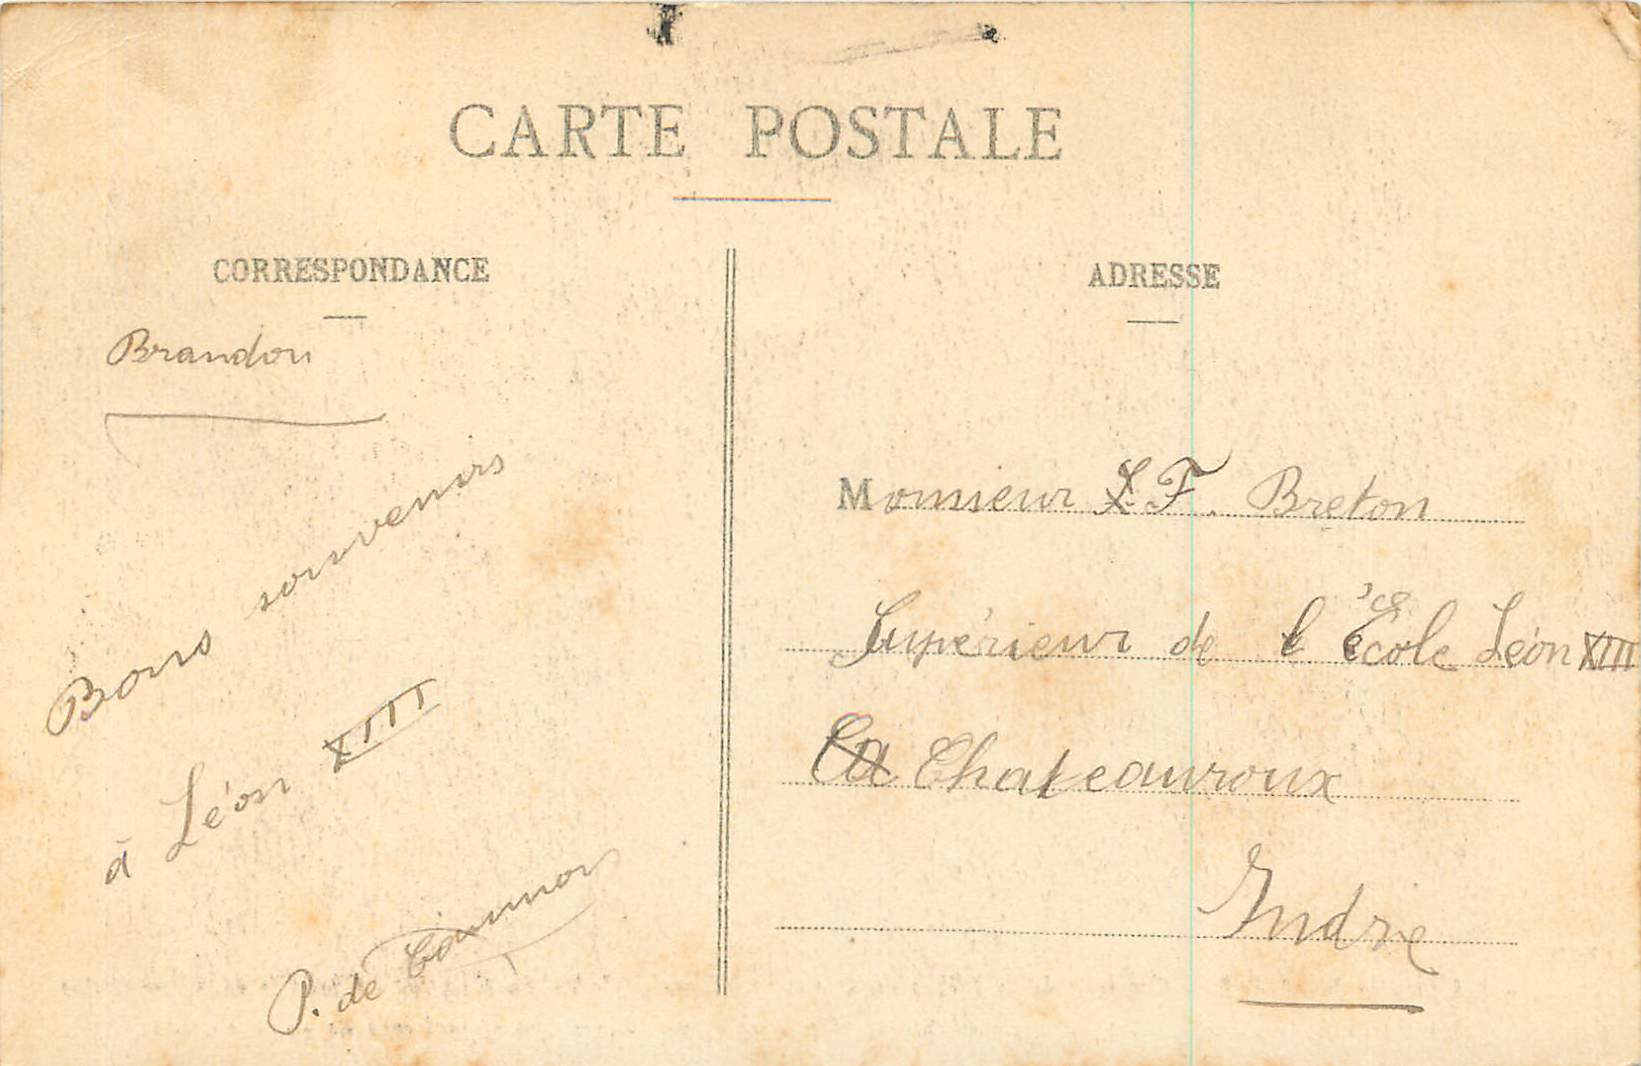 CARTE POSTALE
CORRESPONDANCE
Brandon
Bons souvenirs
à Léon XIII
P. de
ADRESSE
Monsieur F. Breton
Supérieur de l'École Léon XIII
Chateauroux
Indre